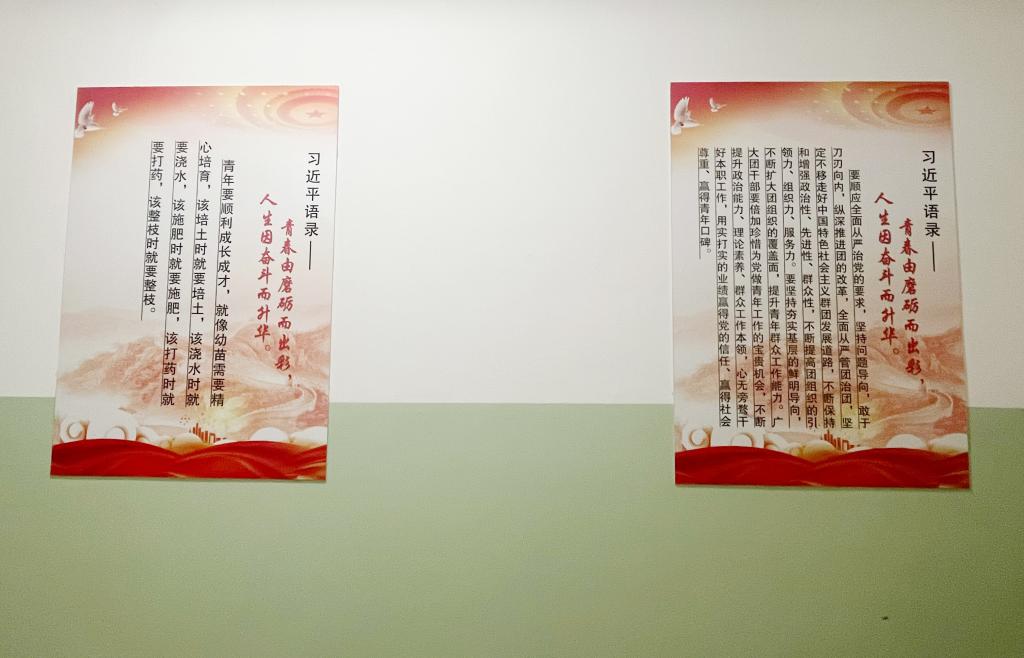 习近平语录——
青春由磨砺而出彩，
人生因奋斗而升华。
青年要顺利成长成才，就像幼苗需要精
心培育，该培土时就要培土，该浇水时就
要浇水，该施肥时就要施肥，该打药时就
要打药，该整枝时就要整枝。
习近平语录——
青春由磨砺而出彩，
人生因奋斗而升华。
要顺应全面从严治党的要求，坚持问题导向，敢于
刀刃向内，纵深推进团的改革，全面从严管团治团，坚
定不移走好中国特色社会主义群团发展道路，不断保持
和增强政治性、先进性、群众性，不断提高团组织的引
领力、组织力、服务力。要坚持夯实基层的鲜明导向，
不断扩大团组织的覆盖面，提升青年群众工作能力。广
大团干部要倍加珍惜为党做青年工作的宝贵机会，不断
提升政治能力、理论素养、群众工作本领，心无旁骛干
好本职工作，用实打实的业绩赢得党的信任、赢得社会
尊重、赢得青年口碑。